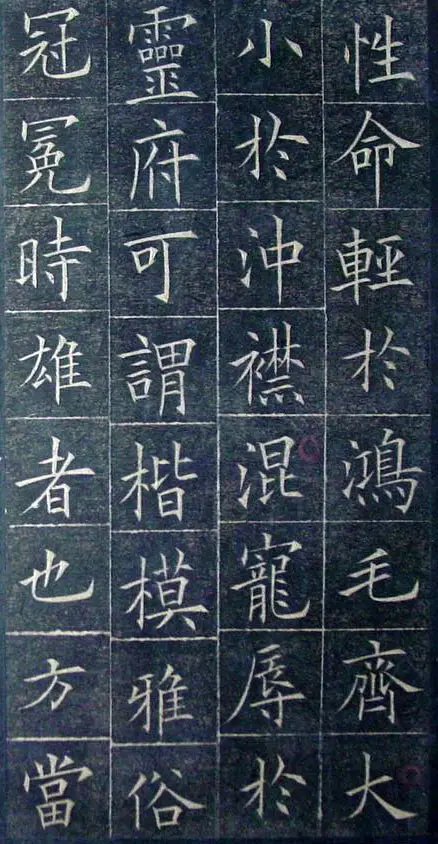 性命輕於鴻毛齊大
小於沖襟混寵辱於
靈府可謂楷模雅俗
冠冕時雄者也方當